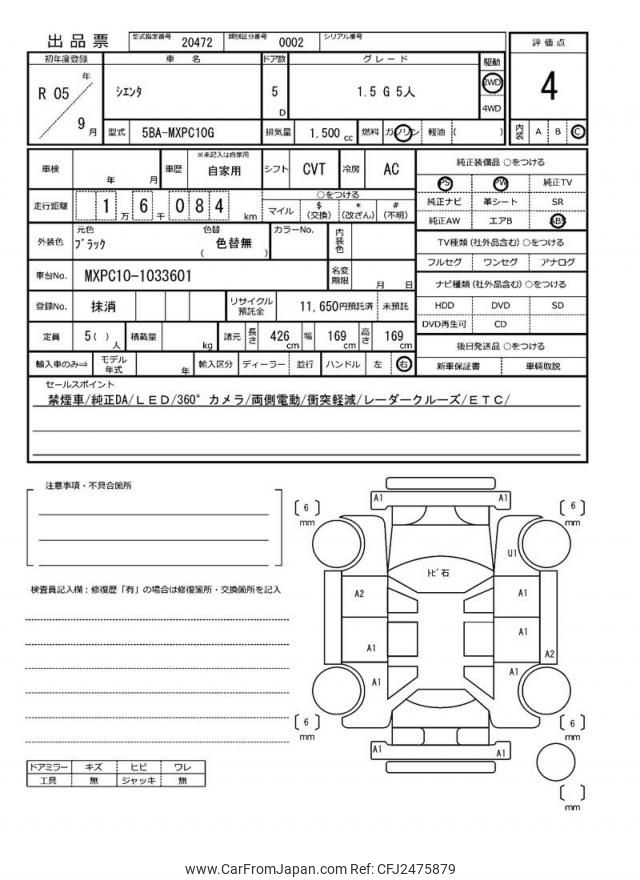 出品票
型式指定番号 20472 類別区分番号 0002 シリアル番号
初年度登録 車名 ドア数 グレード 駆動 評価点
R 05 年 9 月
シエンタ 5 D 1.5 G 5人 2WD 4WD
4
型式 5BA-MXPC10G 排気量 1.500 cc 燃料 ガソリン 軽油 ( )
内装 A B C
車検 年 月 車歴 ※未記入は自家用 自家用 シフト CVT 冷房 AC
純正装備品 ○をつける
PS PW 純正TV
純正ナビ 革シート SR
純正AW エアB ABS
走行距離 1 万 6 千 0 8 4 km
○をつける
マイル $ (交換) * (改ざん) # (不明)
外装色 元色 ブラック 色替 ( 色替無 ) カラーNo. 内装色
TV種類 (社外品含む) ○をつける
フルセグ ワンセグ アナログ
車台No. MXPC10-1033601 名変期限 月 日
ナビ種類 (社外品含む) ○をつける
HDD DVD SD
DVD再生可 CD
登録No. 抹消 リサイクル預託金 11,650円預託済 未預託
定員 5( ) 人 積載量 kg 諸元 長さ 426 cm 幅 169 cm 高さ 169 cm
後日発送品 ○をつける
新車保証書 車輌取説
輸入車のみ⇒ モデル年式 年 輸入区分 ディーラー 並行 ハンドル 左 右
セールスポイント
禁煙車/純正DA/LED/360°カメラ/両側電動/衝突軽減/レーダークルーズ/ETC/
注意事項・不具合箇所
検査員記入欄：修復歴「有」の場合は修復箇所・交換箇所を記入
A1 A1
6 mm 6 mm
U1
トビ石
A2 A1
A1 A1 A2
A1 A1
6 mm 6 mm
A1 A1
mm
ドアミラー キズ ヒビ ワレ
工具 無 ジャッキ 無
www.CarFromJapan.com Ref: CFJ2475879